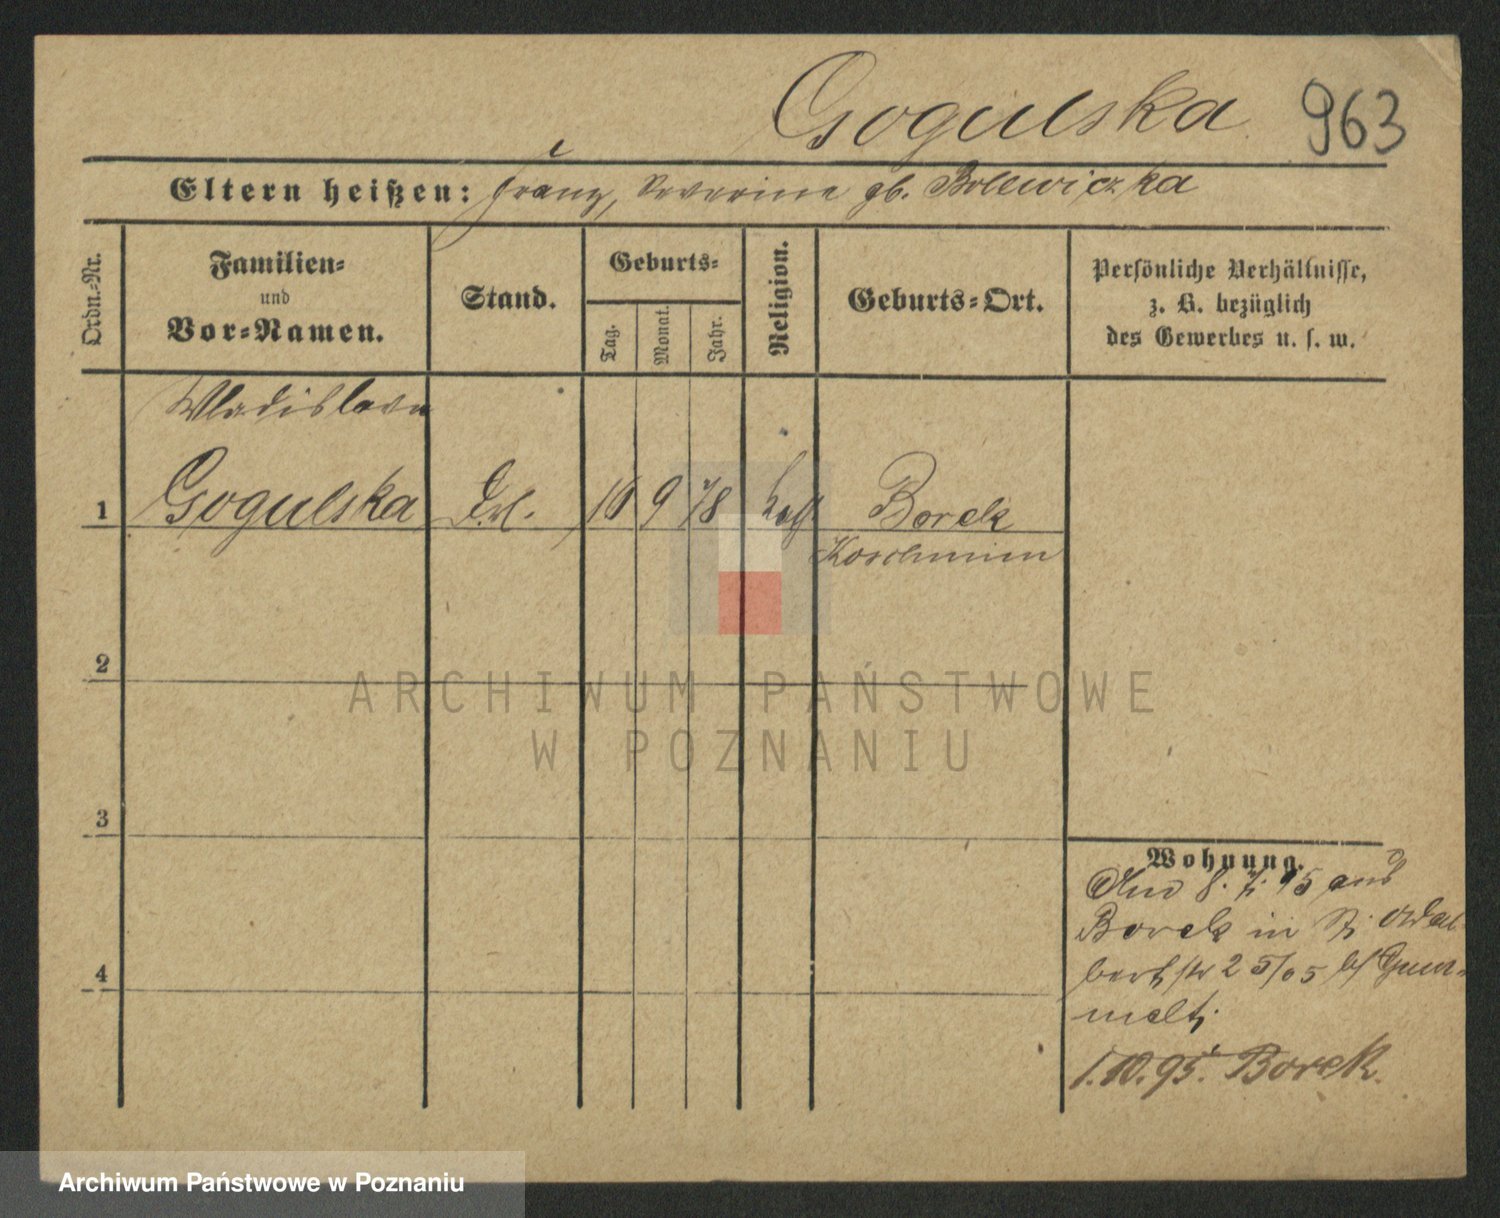 Gogulska 963
Eltern heißen: Franz, Severine gb. Bolewiczka
Ordn.-Nr.
Familien-
und
Vor-Namen.
Stand.
Geburts-
Tag.
Monat.
Jahr.
Religion.
Geburts-Ort.
Persönliche Verhältnisse,
z. B. bezüglich
des Gewerbes u. s. w.
Wladislava
1 Gogulska Frl. 9 78 kath Borek
Koschmin
2
ARCHIWUM PAŃSTWOWE
W POZNANIU
3
4
Wohnung.
8. 7. 95 aus
Borek in St. Adal
bertstr 2
1.10.95. Borek.
Archiwum Państwowe w Poznaniu